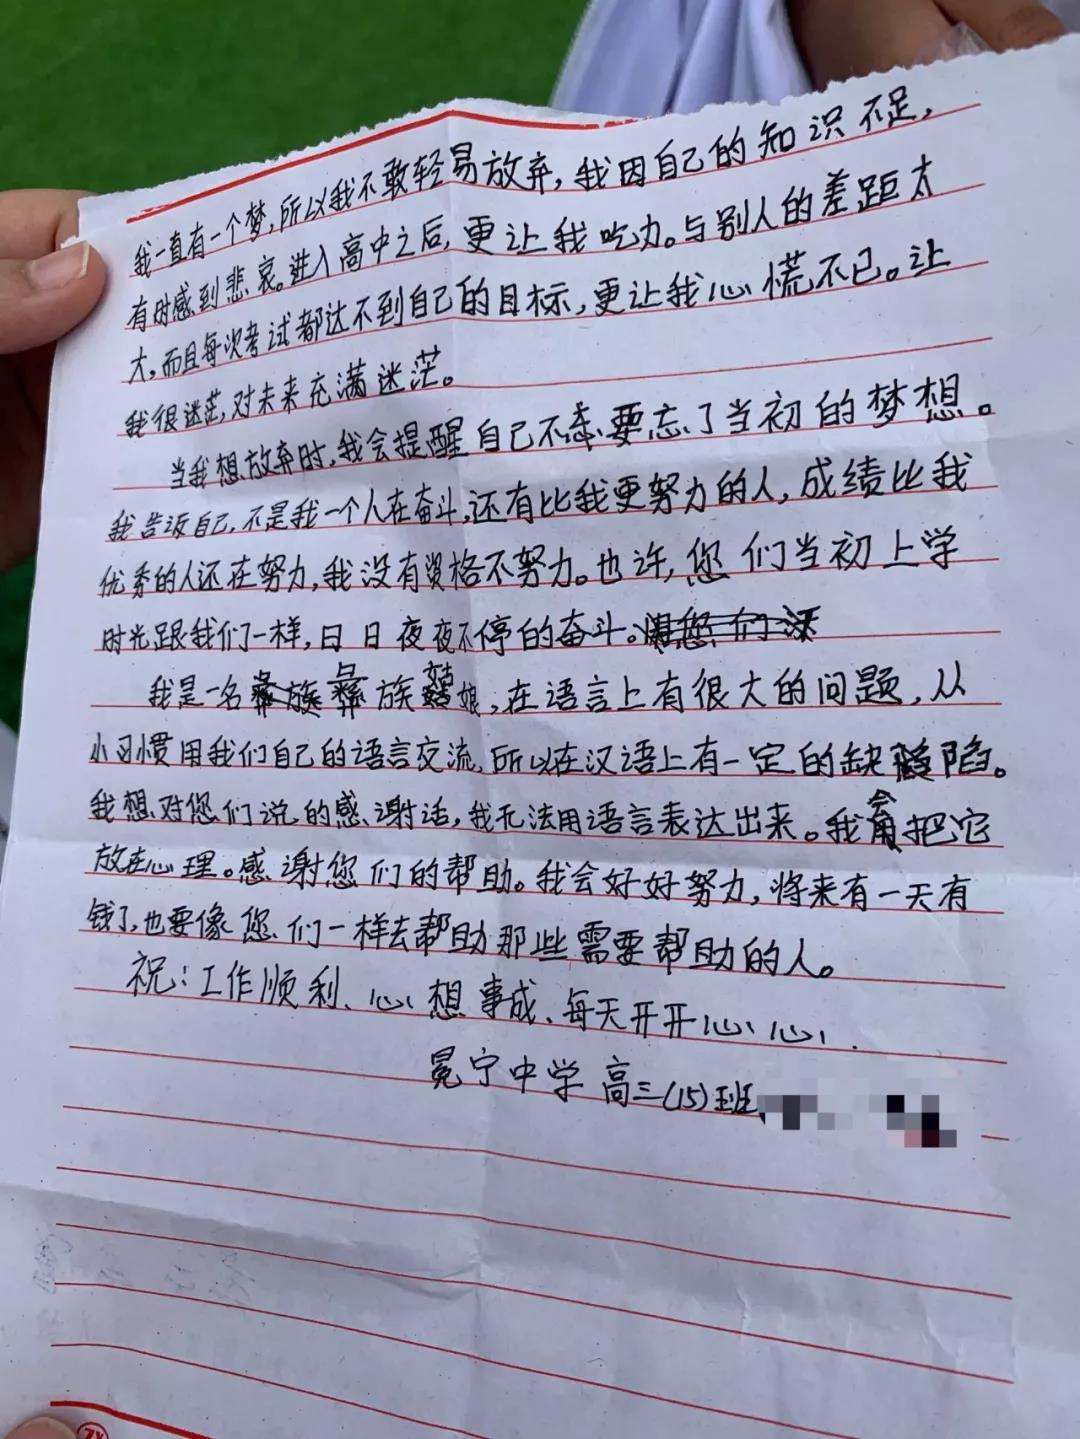 我一直有一个梦,所以我不敢轻易放弃,我因自己的知识不足,
有时感到悲哀。进入高中之后,更让我吃力。与别人的差距太
大,而且每次考试都达不到自己的目标,更让我心慌不已。让
我很迷茫,对未来充满迷茫。
当我想放弃时,我会提醒自己不要忘了当初的梦想。
我告诉自己,不是我一个人在奋斗,还有比我更努力的人,成绩比我
优秀的人还在努力,我没有资格不努力。也许,您们当初上学
时光跟我们一样,日日夜夜不停的奋斗。
我是一名彝族姑娘,在语言上有很大的问题,从
小习惯用我们自己的语言交流,所以在汉语上有一定的缺陷。
我想对您们说的感谢话,我无法用语言表达出来。我会把它
放在心理。感谢您们的帮助。我会好好努力,将来有一天有
钱了,也要像您们一样去帮助那些需要帮助的人。
祝:工作顺利、心想事成、每天开开心心.
冕宁中学高三(15)班